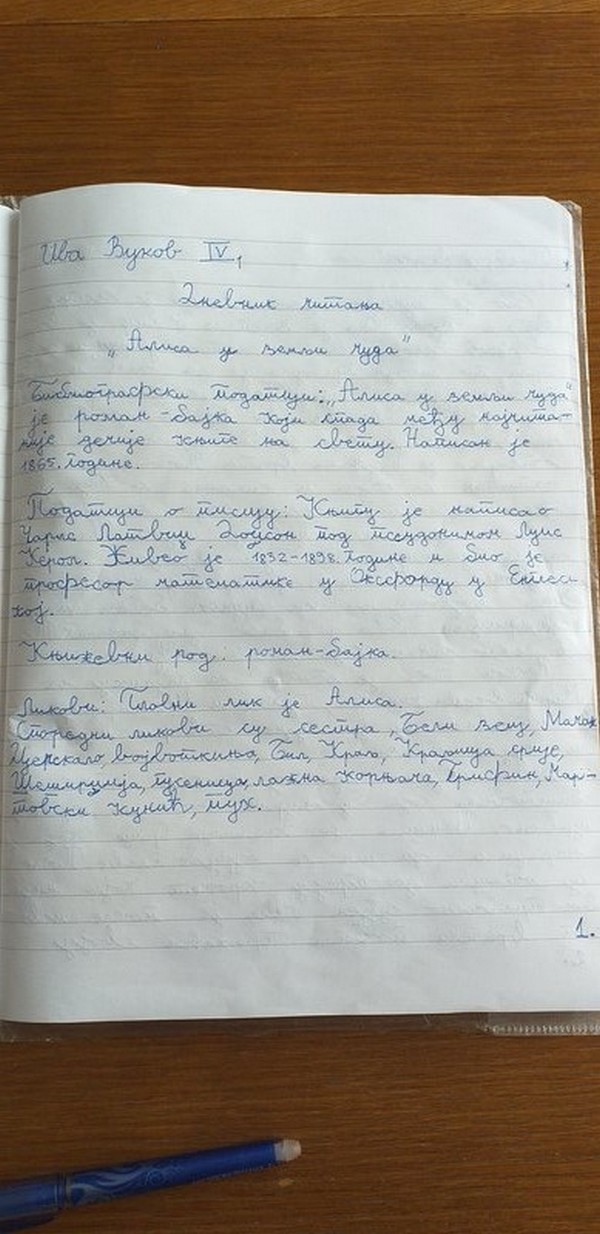 Ива Вуков IV₁
Дневник читања
„Алиса у земљи чуда"
Библиографски подаци: „Алиса у земљи чуда"
је роман-бајка који спада међу најчита-
није дечије књиге на свету. Написан је
1865. године.
Подаци о писцу: Књигу је написао
Чарлс Латвиџ Доџсон под псеудонимом Луис
Керол. Живео је 1832-1898. године и био је
професор математике у Оксфорду у Енглес-
кој.
Књижевни род: роман-бајка.
Ликови: Главни лик је Алиса.
Споредни ликови су сестра, Бели зец, Мачак
Церекало, војвоткиња, Бил, Краљ, Краљица срце,
Шеширџија, гусеница, лажна корњача, Грифин, Мар-
товски кунић, пух.
1.